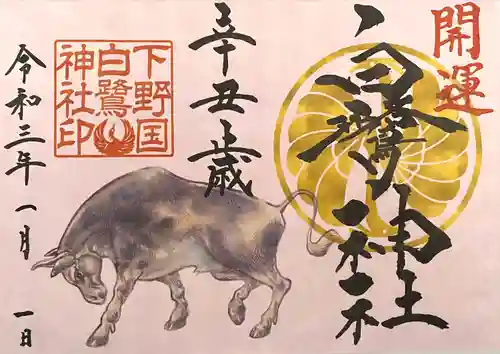 開運
白鷺神社
辛丑之歳
下野国
白鷺
神社印
令和三年 一月 一日